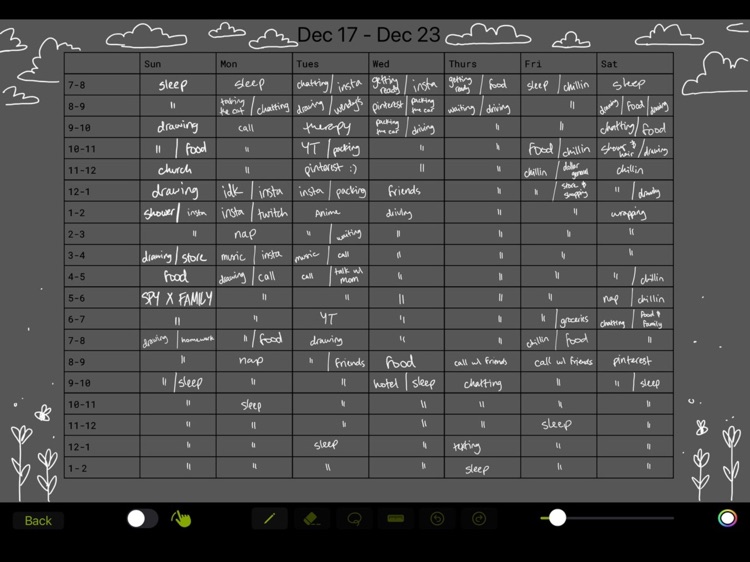 Dec 17 - Dec 23
Sun Mon Tues Wed Thurs Fri Sat
7-8 sleep sleep chatting / insta getting ready / insta getting ready / food sleep / chillin sleep
8-9 " taking the cat / chatting drawing / wendy's pinterest / packing the car waiting / driving " drawing / food / drawing
9-10 drawing call therapy packing the car / driving " " chatting / food
10-11 " / food " YT / packing " " food / chillin shower & hair / drawing
11-12 church " pinterest :) " " chillin / dollar general chillin
12-1 drawing idk / insta insta / packing friends " " / store & shopping " / drawing
1-2 shower / insta insta / twitch Anime driving " " wrapping
2-3 " nap " / waiting " " " "
3-4 drawing / store music / insta music / call " " " "
4-5 food drawing / call call / talk w/ mom " " " " / chillin
5-6 SPY X FAMILY " " " " " nap / chillin
6-7 " " YT " " " / groceries chatting / food & family
7-8 drawing / homework " / food drawing " " chillin / food "
8-9 " nap " / friends food call w/ friends call w/ friends pinterest
9-10 " / sleep " " hotel / sleep chatting " " / sleep
10-11 " sleep " " " " "
11-12 " " " " " sleep "
12-1 " " sleep " texting " "
1-2 " " " " sleep " "
Back